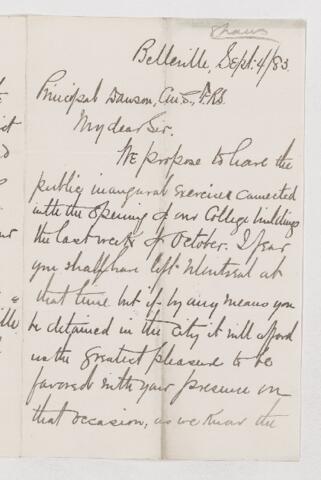 Belleville, Sept. 4/83.
Principal Dawson, F.R.S.
My dear Sir.
We propose to have the
public inaugural exercises connected
with the opening of our College buildings
the last week of October. I fear
you shall have left Montreal at
that time but if by any means you
be detained in the city it will afford
us the greatest pleasure to be
favored with your presence on
that occasion, as we know the